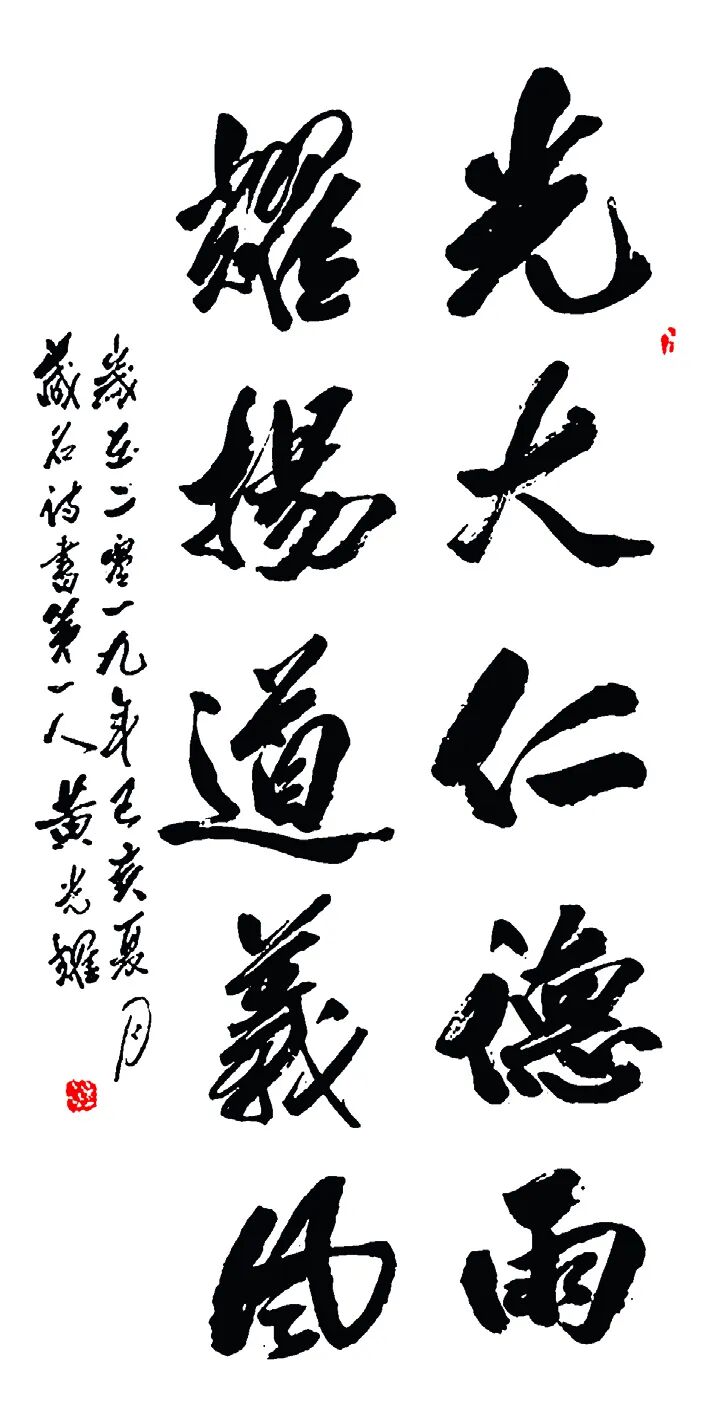 光大仁德雨
耀揚道義風
歲在二零一九年己亥夏月
藏名詩書第一人黄光耀